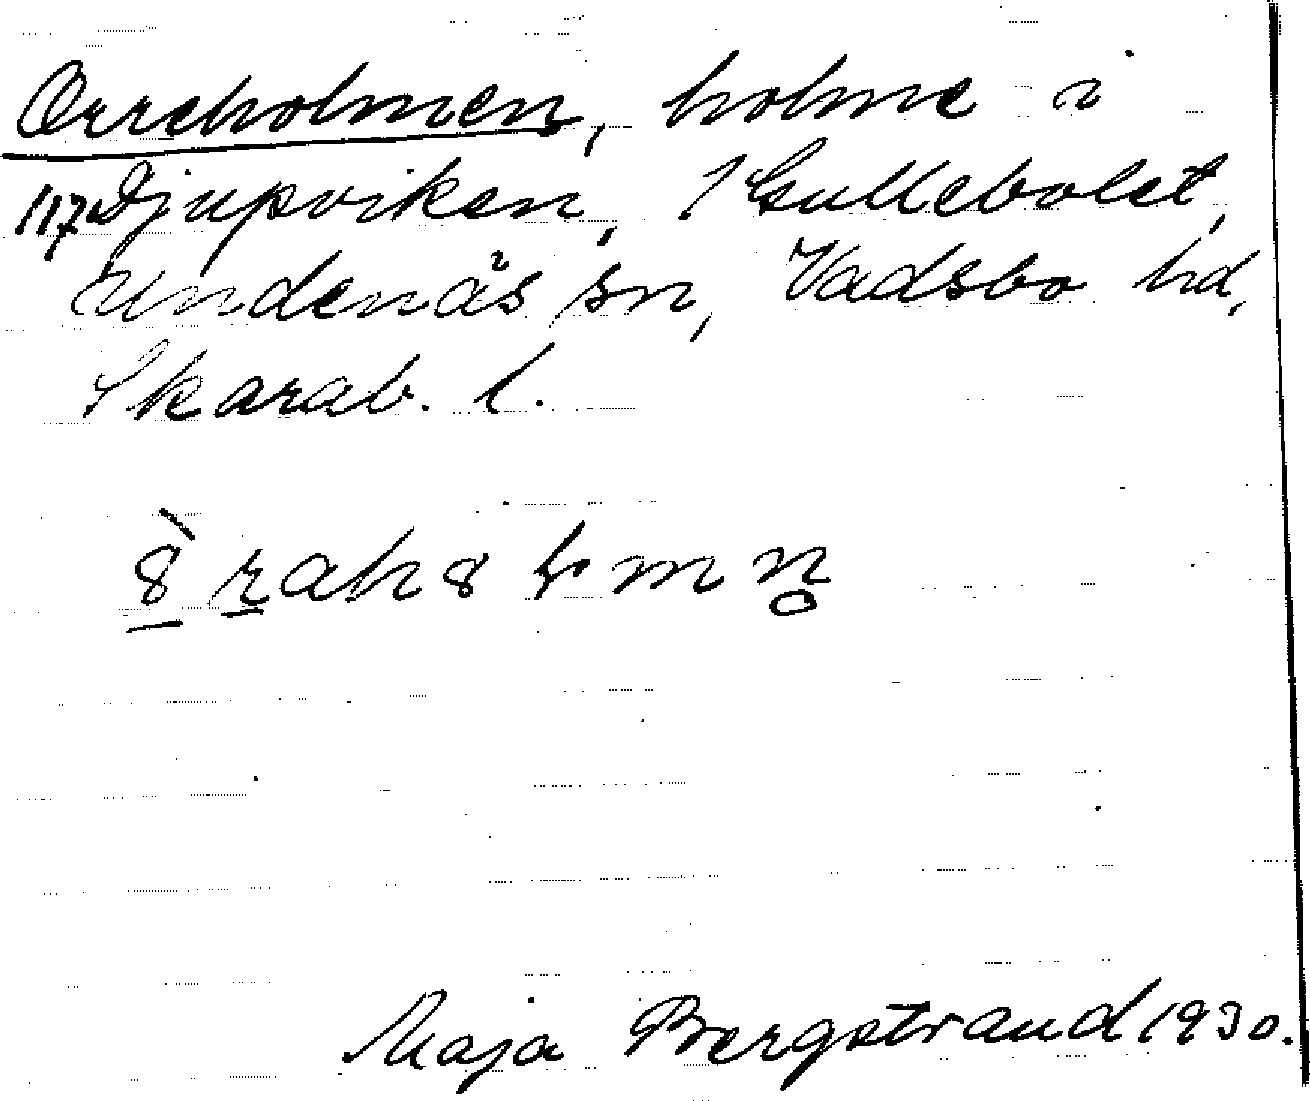 Orreholmen, holme i
117 Djupviken, 1 Gullebolet,
Undenäs sn, Vadsbo hd,
Skarab. l.
Maja Bergstrand 1930.